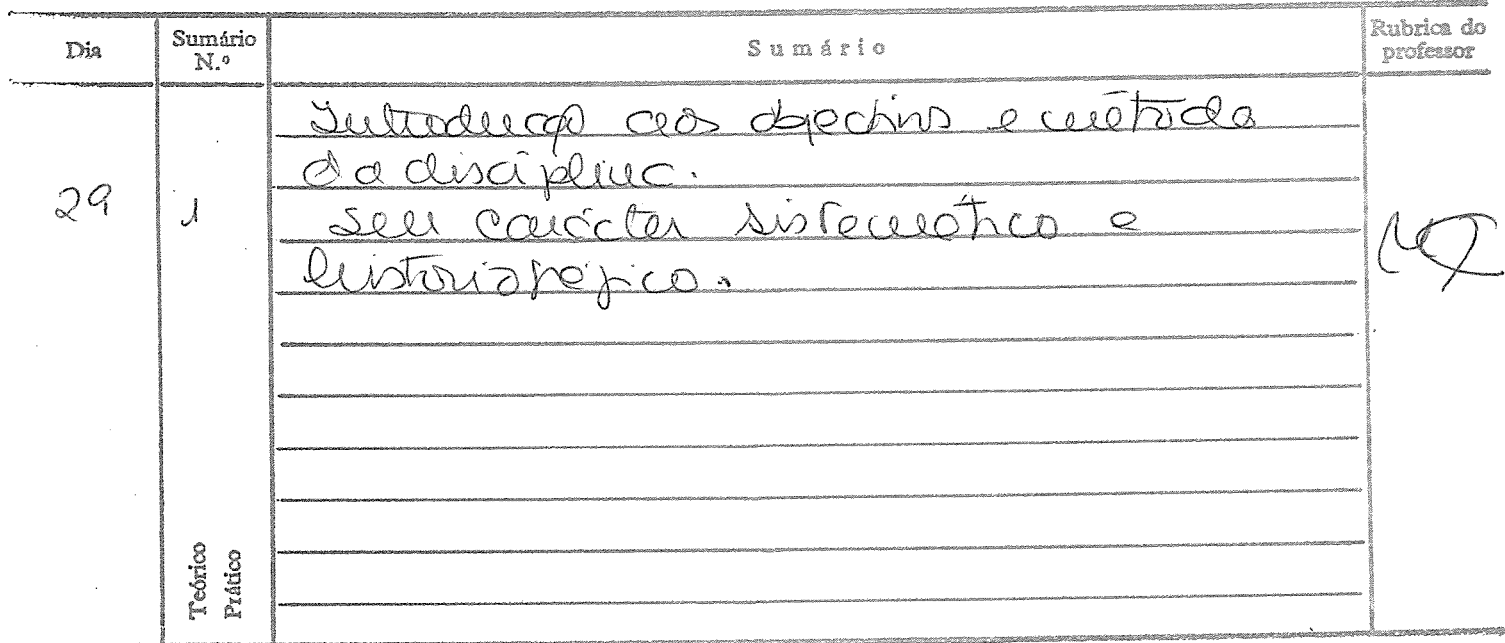 Dia
Sumário N.º
Sumário
Rubrica do professor
29
1
Introdução aos objectivos e método
da disciplina.
Seu carácter sistemático e
historiográfico.
Teórico
Prático